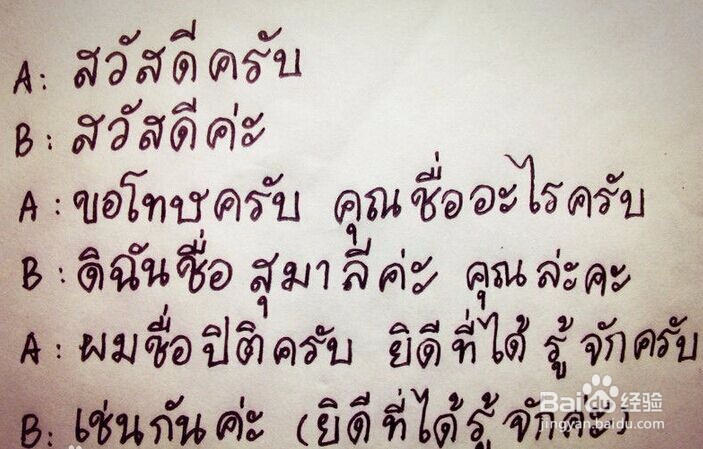 A: สวัสดีครับ
B: สวัสดีค่ะ
A: ขอโทษครับ คุณชื่ออะไรครับ
B: ดิฉันชื่อ สุมาลีค่ะ คุณล่ะคะ
A: ผมชื่อปิติครับ ยิดีที่ได้ รู้จักครับ
B: เช่นกันค่ะ (ยิดีที่ได้รู้จักค่ะ)
Baidu 经验
jingyan.baidu.com